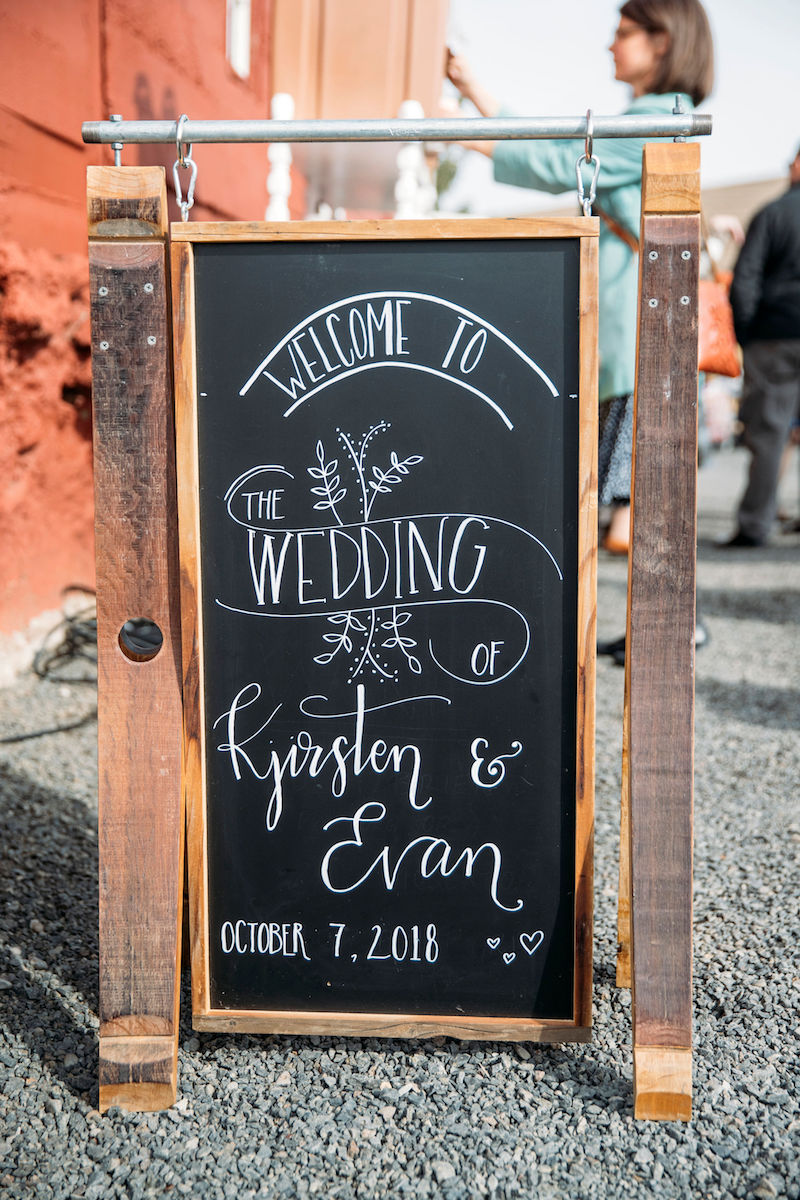 WELCOME TO
THE
WEDDING
OF
Kjirsten &
Evan
OCTOBER 7, 2018